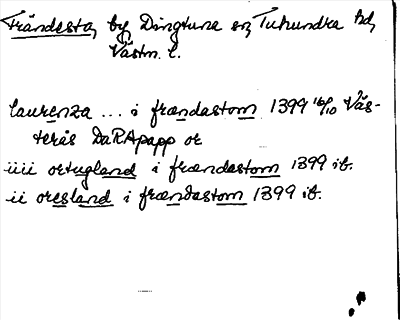 Frändesta, by, Dingtuna sn, Tuhundra hd,
Västm. l.
laurenza ... i frændastom 1399 16/10 Väs-
terås DaRApapp or
iiii ortugland i frændastom 1399 ib.
ii oresland i frændastom 1399 ib.